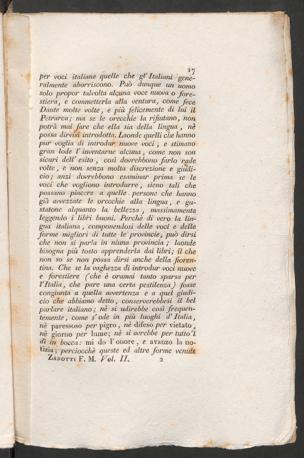 17
per voci italiane quelle che gl' Italiani gene-
ralmente aborriscono. Può dunque un uomo
solo propor talvolta alcuna voce nuova o fore-
stiera, e commetterla alla ventura, come fece
Dante molte volte, e più felicemente di lui il
Petrarca; ma se le orecchie la rifiutano, non
potrà mai fare che ella sia della lingua, nè
possa dirsi introdotta. Laonde quelli che hanno
pur voglia di introdur nuove voci, e stimano
gran lode l'inventarne alcuna, come non son
sicuri dell' esito, così dovrebbono farlo rade
volte, e non senza molta discrezione e giudi-
cio; anzi dovrebbono esaminar prima se le
voci che vogliono introdurre, sieno tali che
possano piacere a quelle persone che hanno
già avvezzate le orecchie alla lingua, e gu-
statone alquanto la bellezza, massimamente
leggendo i libri buoni. Perchè di vero la lin-
gua italiana, componendosi delle voci e delle
forme migliori di tutte le provincie, può dirsi
che non si parla in niuna provincia; laonde
bisogna più tosto apprenderla dai libri; il che
non so se non possa dirsi anche della fioren-
tina. Che se la vaghezza di introdur voci nuove
e forestiere (che è oramai tanto sparsa per
l'Italia, che pare una certa pestilenza) fosse
congiunta a quella avvertenza e a quel giudi-
cio che abbiamo detto, conserverebbesi il bel
parlare italiano; nè si udirebbe così frequen-
temente, come s'ode in più luoghi d'Italia,
nè paressono per pigro, nè difeso per vietato,
nè giorno per lume; nè si avrebbe per tutto'l
dì in bocca: mi do l'onore, e avanzo la no-
tizia; perciocchè queste ed altre forme venute
Zanotti F. M. Vol. II. 2